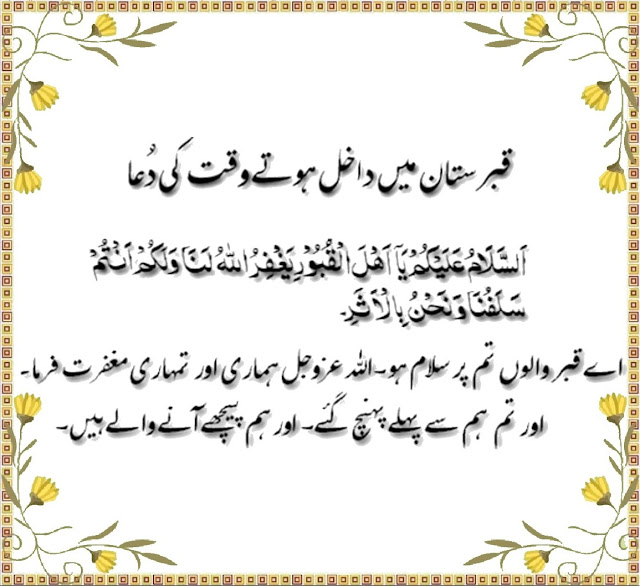 قبرستان میں داخل ہوتے وقت کی دُعا
اَلسَّلَامُ عَلَیْکُمْ یَآ اَھْلَ الْقُبُوْرِ یَغْفِرُ اللّٰہُ لَنَا وَلَکُمْ اَنْتُمْ
سَلَفُنَا وَنَحْنُ بِالْاَثَرِ۔
اے قبر والوں تم پر سلام ہو۔ اللہ عزوجل ہماری اور تمہاری مغفرت فرما۔
اور تم ہم سے پہلے پہنچ گئے۔ اور ہم پیچھے آنے والے ہیں۔